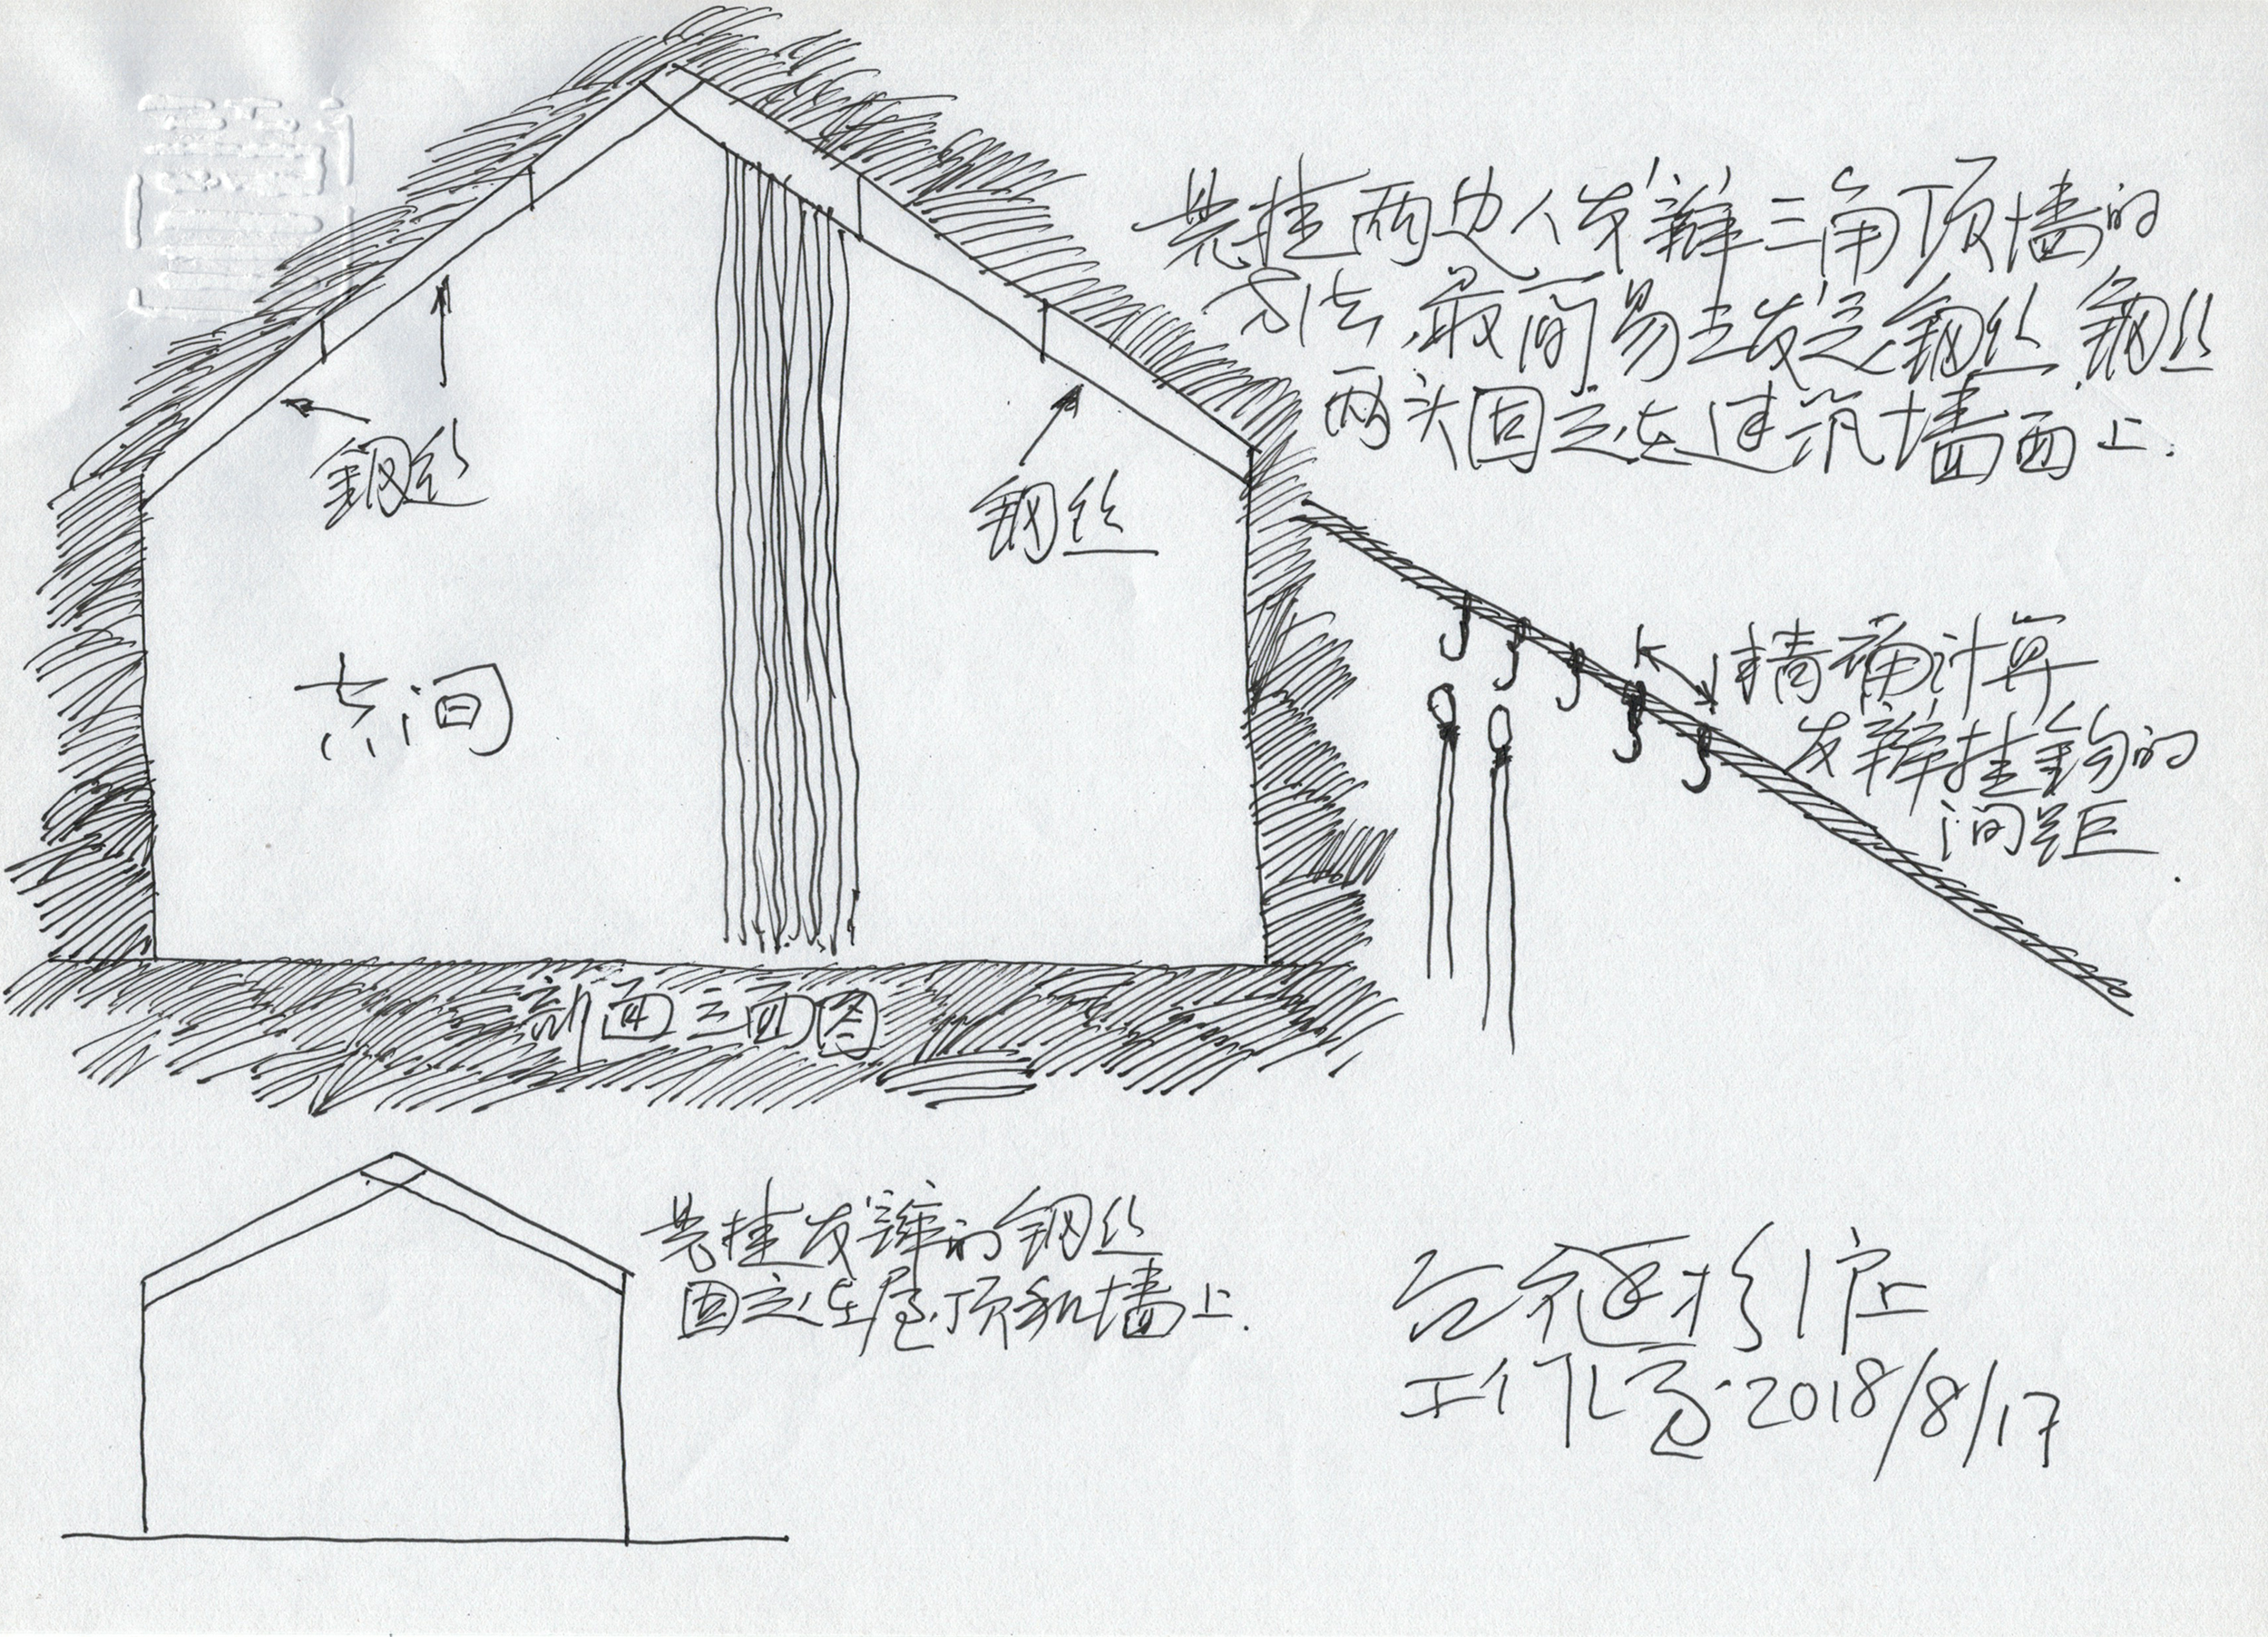 悬挂两边人发辫三角顶墙的
方法，最简易出发是钢丝，钢丝
两头固定在建筑墙面上.
钢丝
钢丝
空间
精确计算
发辫挂钩的
间距.
剖面立面图
悬挂发辫的钢丝
固定在屋顶和墙上.
工作室·2018/8/17